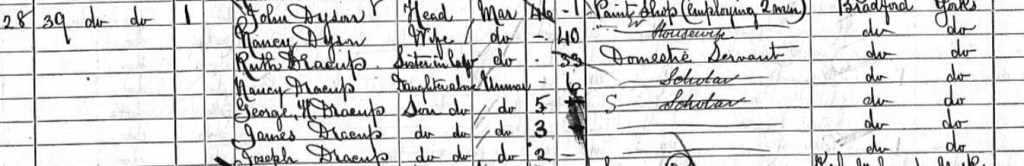 28 39 do do 1 John Dyson Head Mar 46 - Paint Shop (employing 2 men) Bradford Yorks
Nancy Dyson Wife do - 40 Housewife do do
Ruth Dracup Sister in law do - 33 Domestic Servant do do
Nancy Dracup Daughter above Unmar - 6 Scholar do do
George H Dracup Son do do 5 S Scholar do do
James Dracup do do do 3 do do
Joseph Dracup do do do 2 - do do